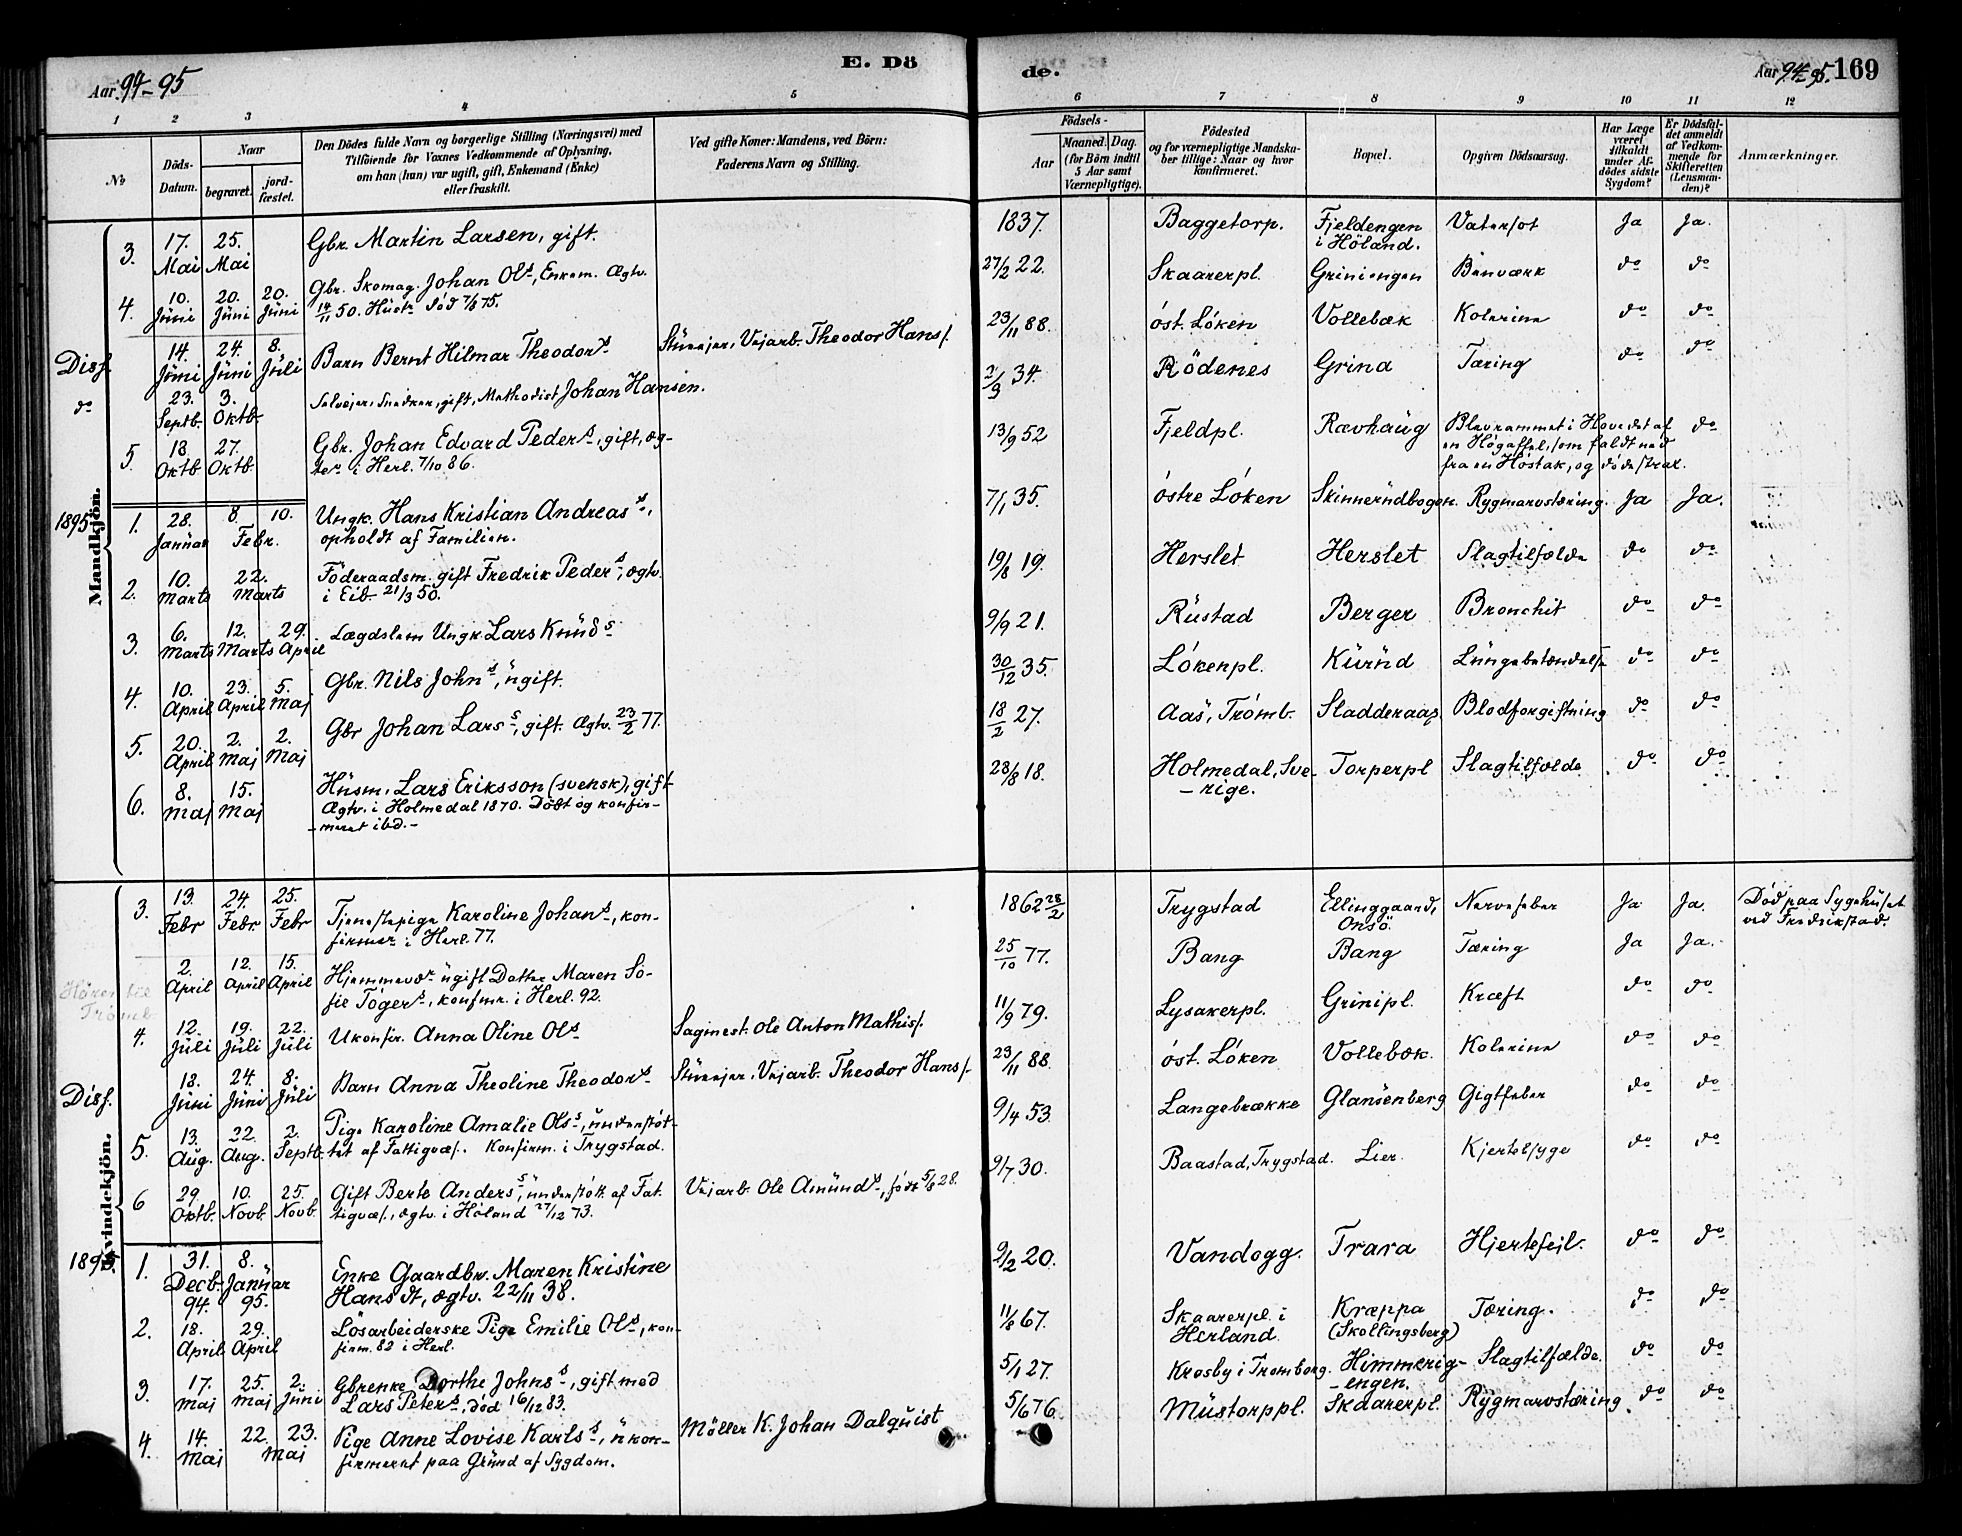 Aar 94-95
E. Dö
de.
Aar 94-95. 169
1 2 3 4 5 6 7 8 9 10 11 12
No
Döds-
Datum.
Naar
begravet.
jord-
fæstet.
Den Dödes fulde Navn og borgerlige Stilling (Næringsvei) med
Tilföiende for Voxnes Vedkommende af Oplysning,
om han (hun) var ugift, gift, Enkemand (Enke)
eller fraskilt.
Ved gifte Koner: Mandens, ved Börn:
Faderens Navn og Stilling.
Födsels-
Aar
Maaned. Dag.
(for Börn indtil
5 Aar samt
Værnepligtige).
Födested
og for værnepligtige Mandska-
ber tillige: Naar og hvor
konfirmeret.
Bopæl.
Opgiven Dödsaarsag.
Har Læge
været
tilkaldt
under Af-
dödes sidste
Sygdom?
Er Dödsfal-
det anmeldt
af Vedkom-
mende for
Skifteretten
(Lensman-
den)?
Anmærkninger.
Mandkjön.
3. 17. Mai 25. Mai Gbr. Martin Larsen, gift. 1837. Baggetorp. Fjeldengen i Höland. Vatersot Ja Ja.
4. 10. Jüni 20. Jüni 20. Jüni Gbr. Skomag. Johan Ols, Enkem. Ægtv.
14/11 50. Hüstr død 7/8 75. 27/2 22. Skaarerpl. Griniengen Benværk do do
Diss. 14. Jüni 24. Jüni 8. Jüli Barn Bernt Hilmar Theodors Stüveejer, Vejarb. Theodor Hans. 23/11 88. öst. Löken Vollebæk Kolerine do do
do 23. Septb. 3. Oktb. Selvejer, Snedker, gift, Methodist Johan Hansen. 2/9 34. Rödenes Grina Tæring do do
5. 18. Oktb 27. Oktb Gbr. Johan Edvard Peders, gift, æg-
tev i Herl. 7/10 86. 13/9 52 Fjeldpl. Rævhaüg Blev rammet i Hovedet af
en Högaffel, som faldt ned
fra en Höstak, og döde strax. do
1895 1. 28. Januar 8. 10. Febr. Ungk. Hans Kristian Andreas s,
opholdt af Familien. 7/1 35. östre Löken Skinnerüdbogen. Rygmarvstæring. Ja Ja.
2. 10. Marts 22. Marts Föderaadsm. gift Fredrik Peders, ægtv.
i Eib. 21/3 50. 19/8 19. Herslet Herslet Slagtilfælde do do
3. 6. Marts 12. Marts 29. April Lægdslem Ungk. Lars Knüds 9/9 21. Rüstad Berger Bronchit do do
4. 10. April 23. April 5. Maj Gbr. Nils Johns, ügift. 30/12 35. Lökenpl. Kürüd Lüngebetændelse do do
5. 20. April 2. Maj 2. Maj Gbr Johan Lars s, gift. Ægtv. 23/2 77. 18/2 27. Aas, Trömb. Sladderaas Blodforgiftning do do
6. 8. Maj 15. Maj Hüsm. Lars Eriksson (svensk), gift
Ægtv. i Holmedal 1870. Döbt og konfir-
-meret ibd.- 28/8 18. Holmedal, Sve-
-rige. Torperpl Slagtilfælde do do
Kvindekjön.
3. 13. Febr 24. Febr. 25. Febr Tjenestepige Karoline Johans, kon-
firmer i Herl. 77. 1862 28/2 Trygstad Ellinggaard,
Onsö. Nervefeber Ja Ja. Död paa Sygehüset
ved Fredrikstad.
Hörer til
Trömb 2. April 12. April 15. April Hjemmevr ügift Datter Maren So-
fie Tögers, konfmr. i Herl. 92. 25/10 77. Bang Bang Tæring Ja Ja.
4. 12. Jüli 19. Jüli 22. Jüli Ukonfir. Anna Oline Ols Sagmest. Ole Anton Mathis. 11/9 79. Lysakerpl. Grinipl. Kræft do do
Diss. 18. Jüni 24. Jüni 8. Jüli Barn Anna Theoline Theodors Stüveejer, Vejarb. Theodor Hans. 23/11 88 öst. Löken Vollebæk. Kolerine do do
5. 13. Aug. 22. Aug. 2. Septb. Pige Karoline Amalie Ols, ünderstöt-
tet af Fattigvæs. Konfirm. i Trygstad. 9/4 53. Langebrække Glansenberg Gigtfeber do do
6 29. Oktb. 10. Novb. 25. Novb. Gift Berte Anders, ünderstött af Fat.
tigvæs., ægtv. i Höland 27/12 73. Vejarb. Ole Amünds, födt 5/8 28. 9/7 30. Baastad, Trygstad. Lier. Kjertelsyge do do
1895. 1. 31. Decb. 94. 8. Janüar 95. Enke Gaardbr. Maren Kristine
Hansdt, ægtv. 22/11 38. 9/2 20. Vandogg. Trara Hjertefeil. do do
2. 18. April 29. April Lösarbeiderske Pige Emilie Ols, kon-
firm. 82 i Herl. 11/8 67. Skaarerpl. i
Herland. Kræppa
(Skollingsberg) Tæring. do do
3. 17. Maj 25. Maj 2. Jüni Gbrenke Dorthe Johns, gift med
Lars Peters, död 16/12 83. 5/1 27. Krosby i Tromborg. Himmerig-
-engen. Slagtilfælde. do do
4. 14. Maj 22. 23. Maj Pige Anne Lovise Karls s, ükon-
firmeret paa Gründ af Sygdom. Möller K. Johan Dalquist 5/6 76. Müstorppl. Skaarerpl. Rygmarvstæring. do do